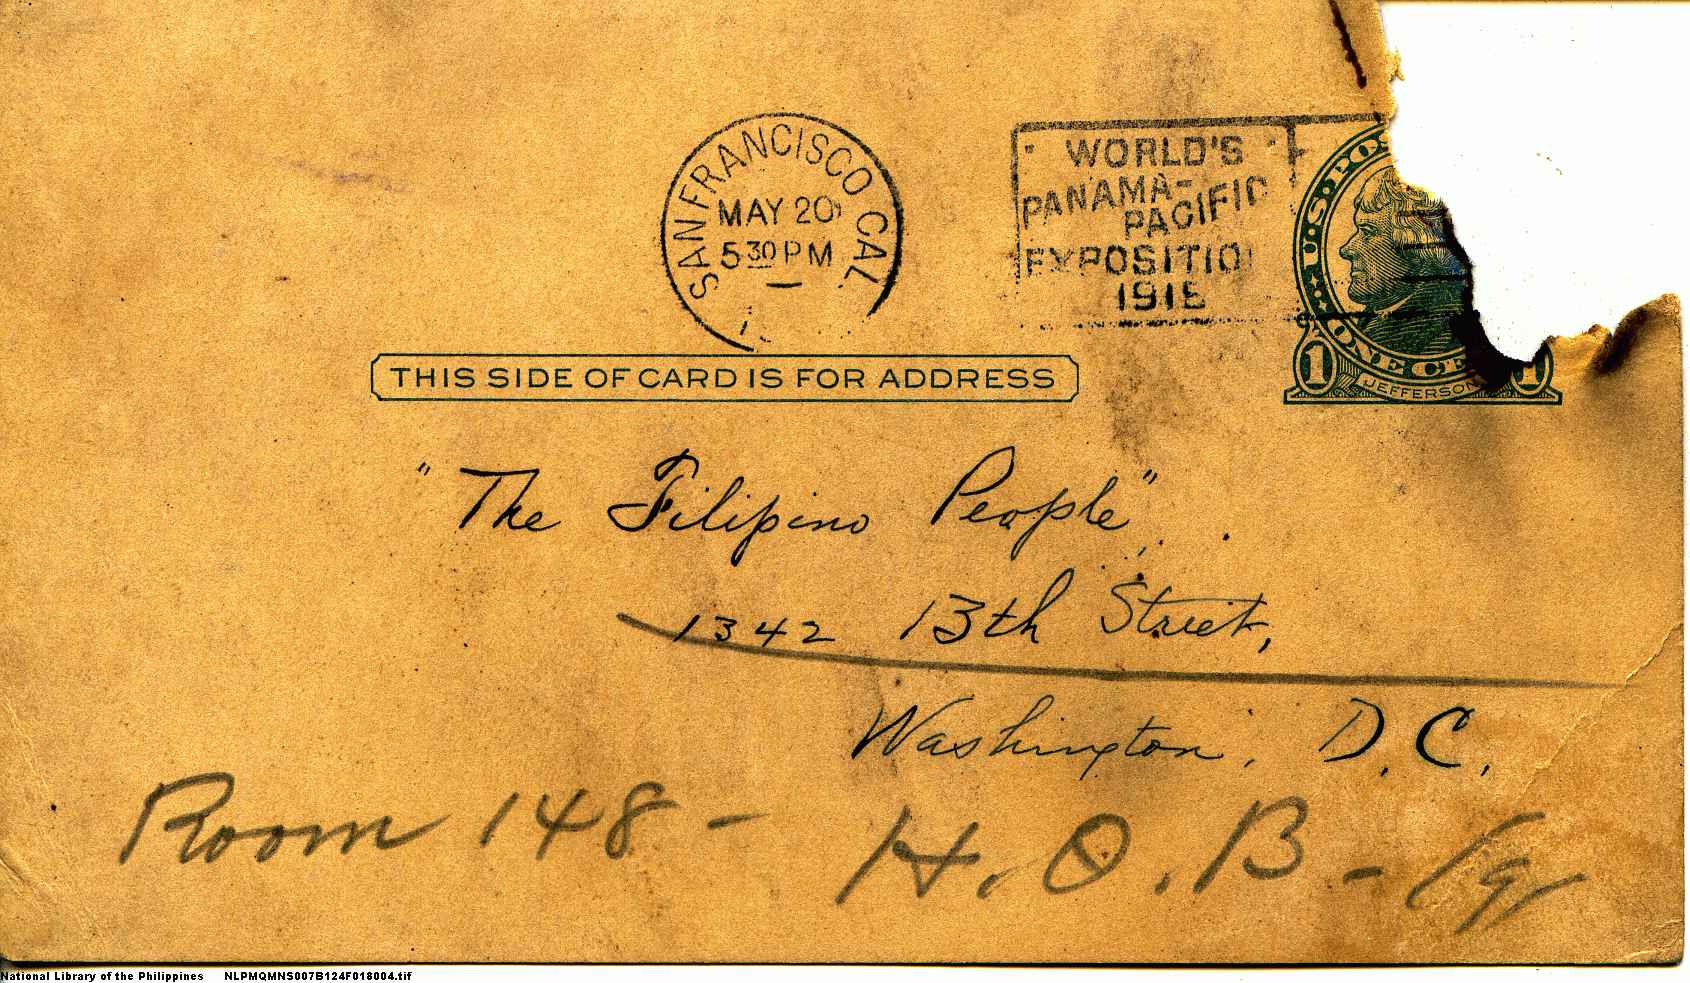 SAN FRANCISCO CAL.
MAY 20
5 30 PM
WORLD'S
PANAMA-
PACIFIC
EXPOSITIO
1915
U.S. POS
ONE CE
1 JEFFERSON 1
THIS SIDE OF CARD IS FOR ADDRESS
"The Filipino People",
1342 13th Street,
Washington, D.C.
Room 148 - H.O.B -
National Library of the Philippines NLPMQMNS007B124F018004.tif